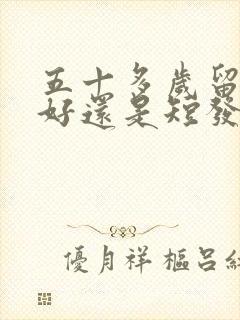 五十多歲留
好還是短發
優月祥樞呂紅